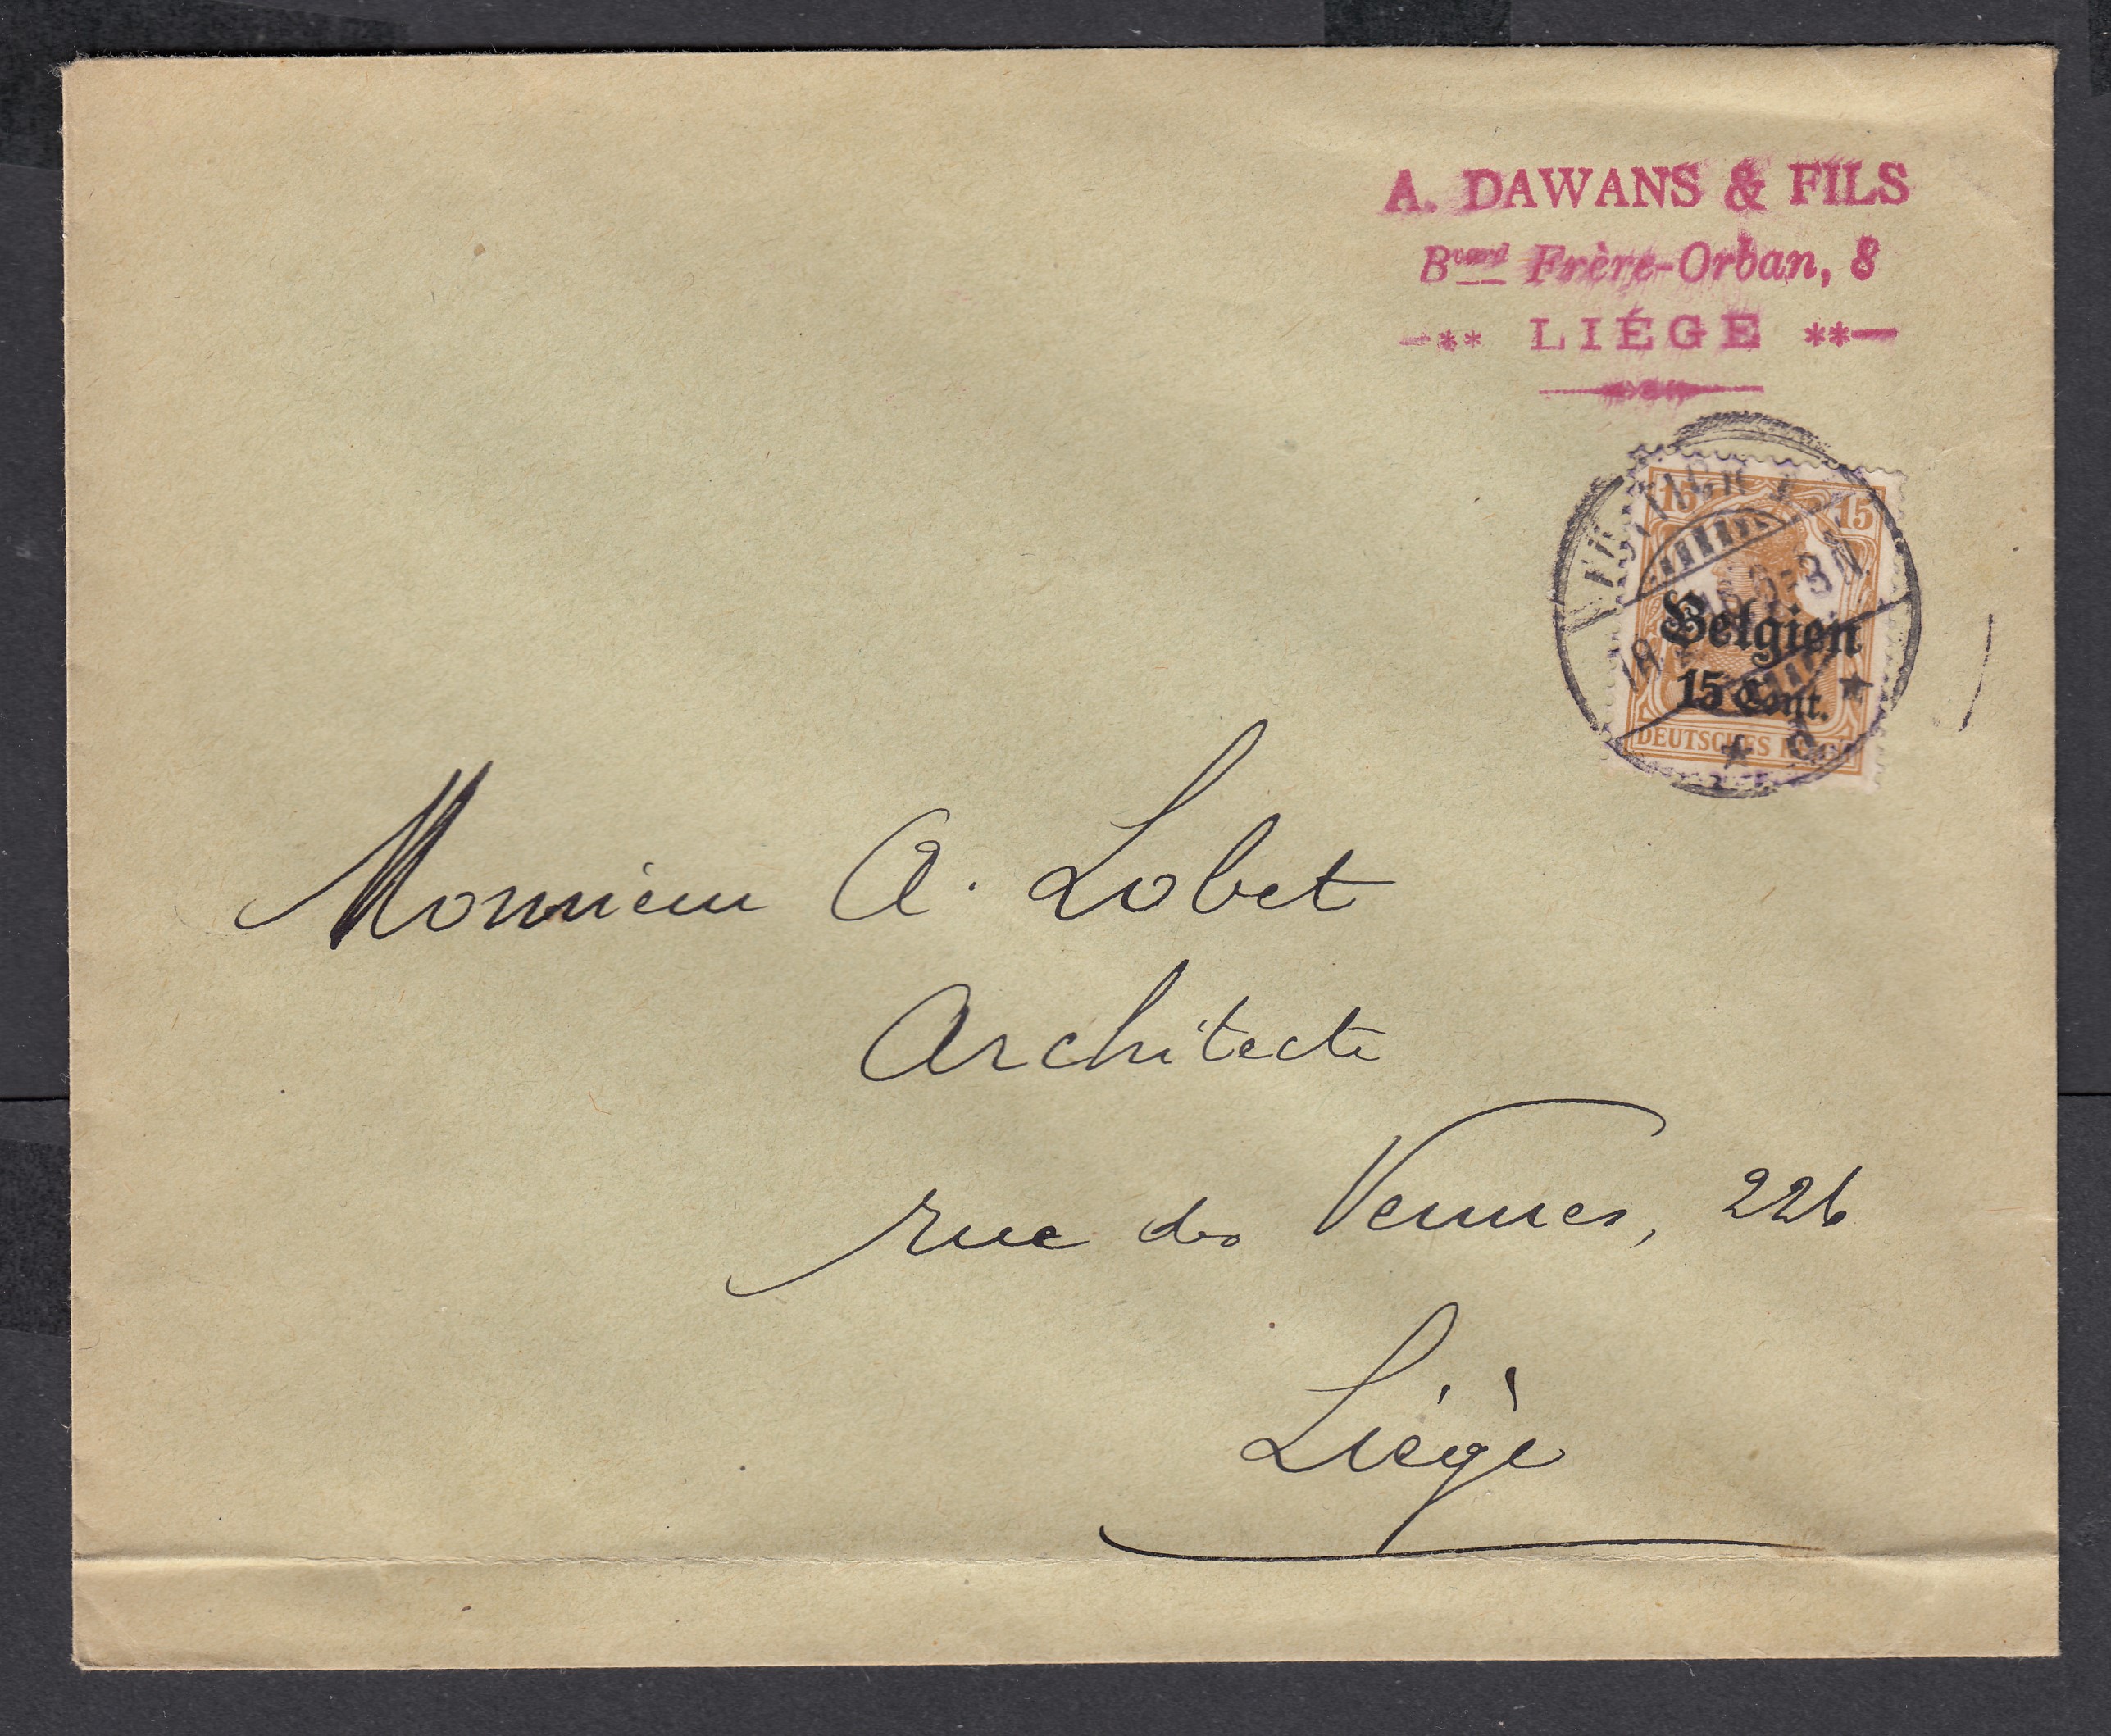 A. DAWANS & FILS
Bvard Frère-Orban, 8
—** LIÉGE **—
15 15
Belgien
15 Cent.
DEUTSCHES
Monsieur A. Lobet
Architecte
rue des Vennes, 226
Liége